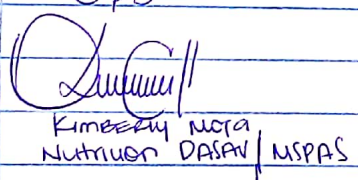 Kimberly Mota
Nutrición DASAN / MSPAS